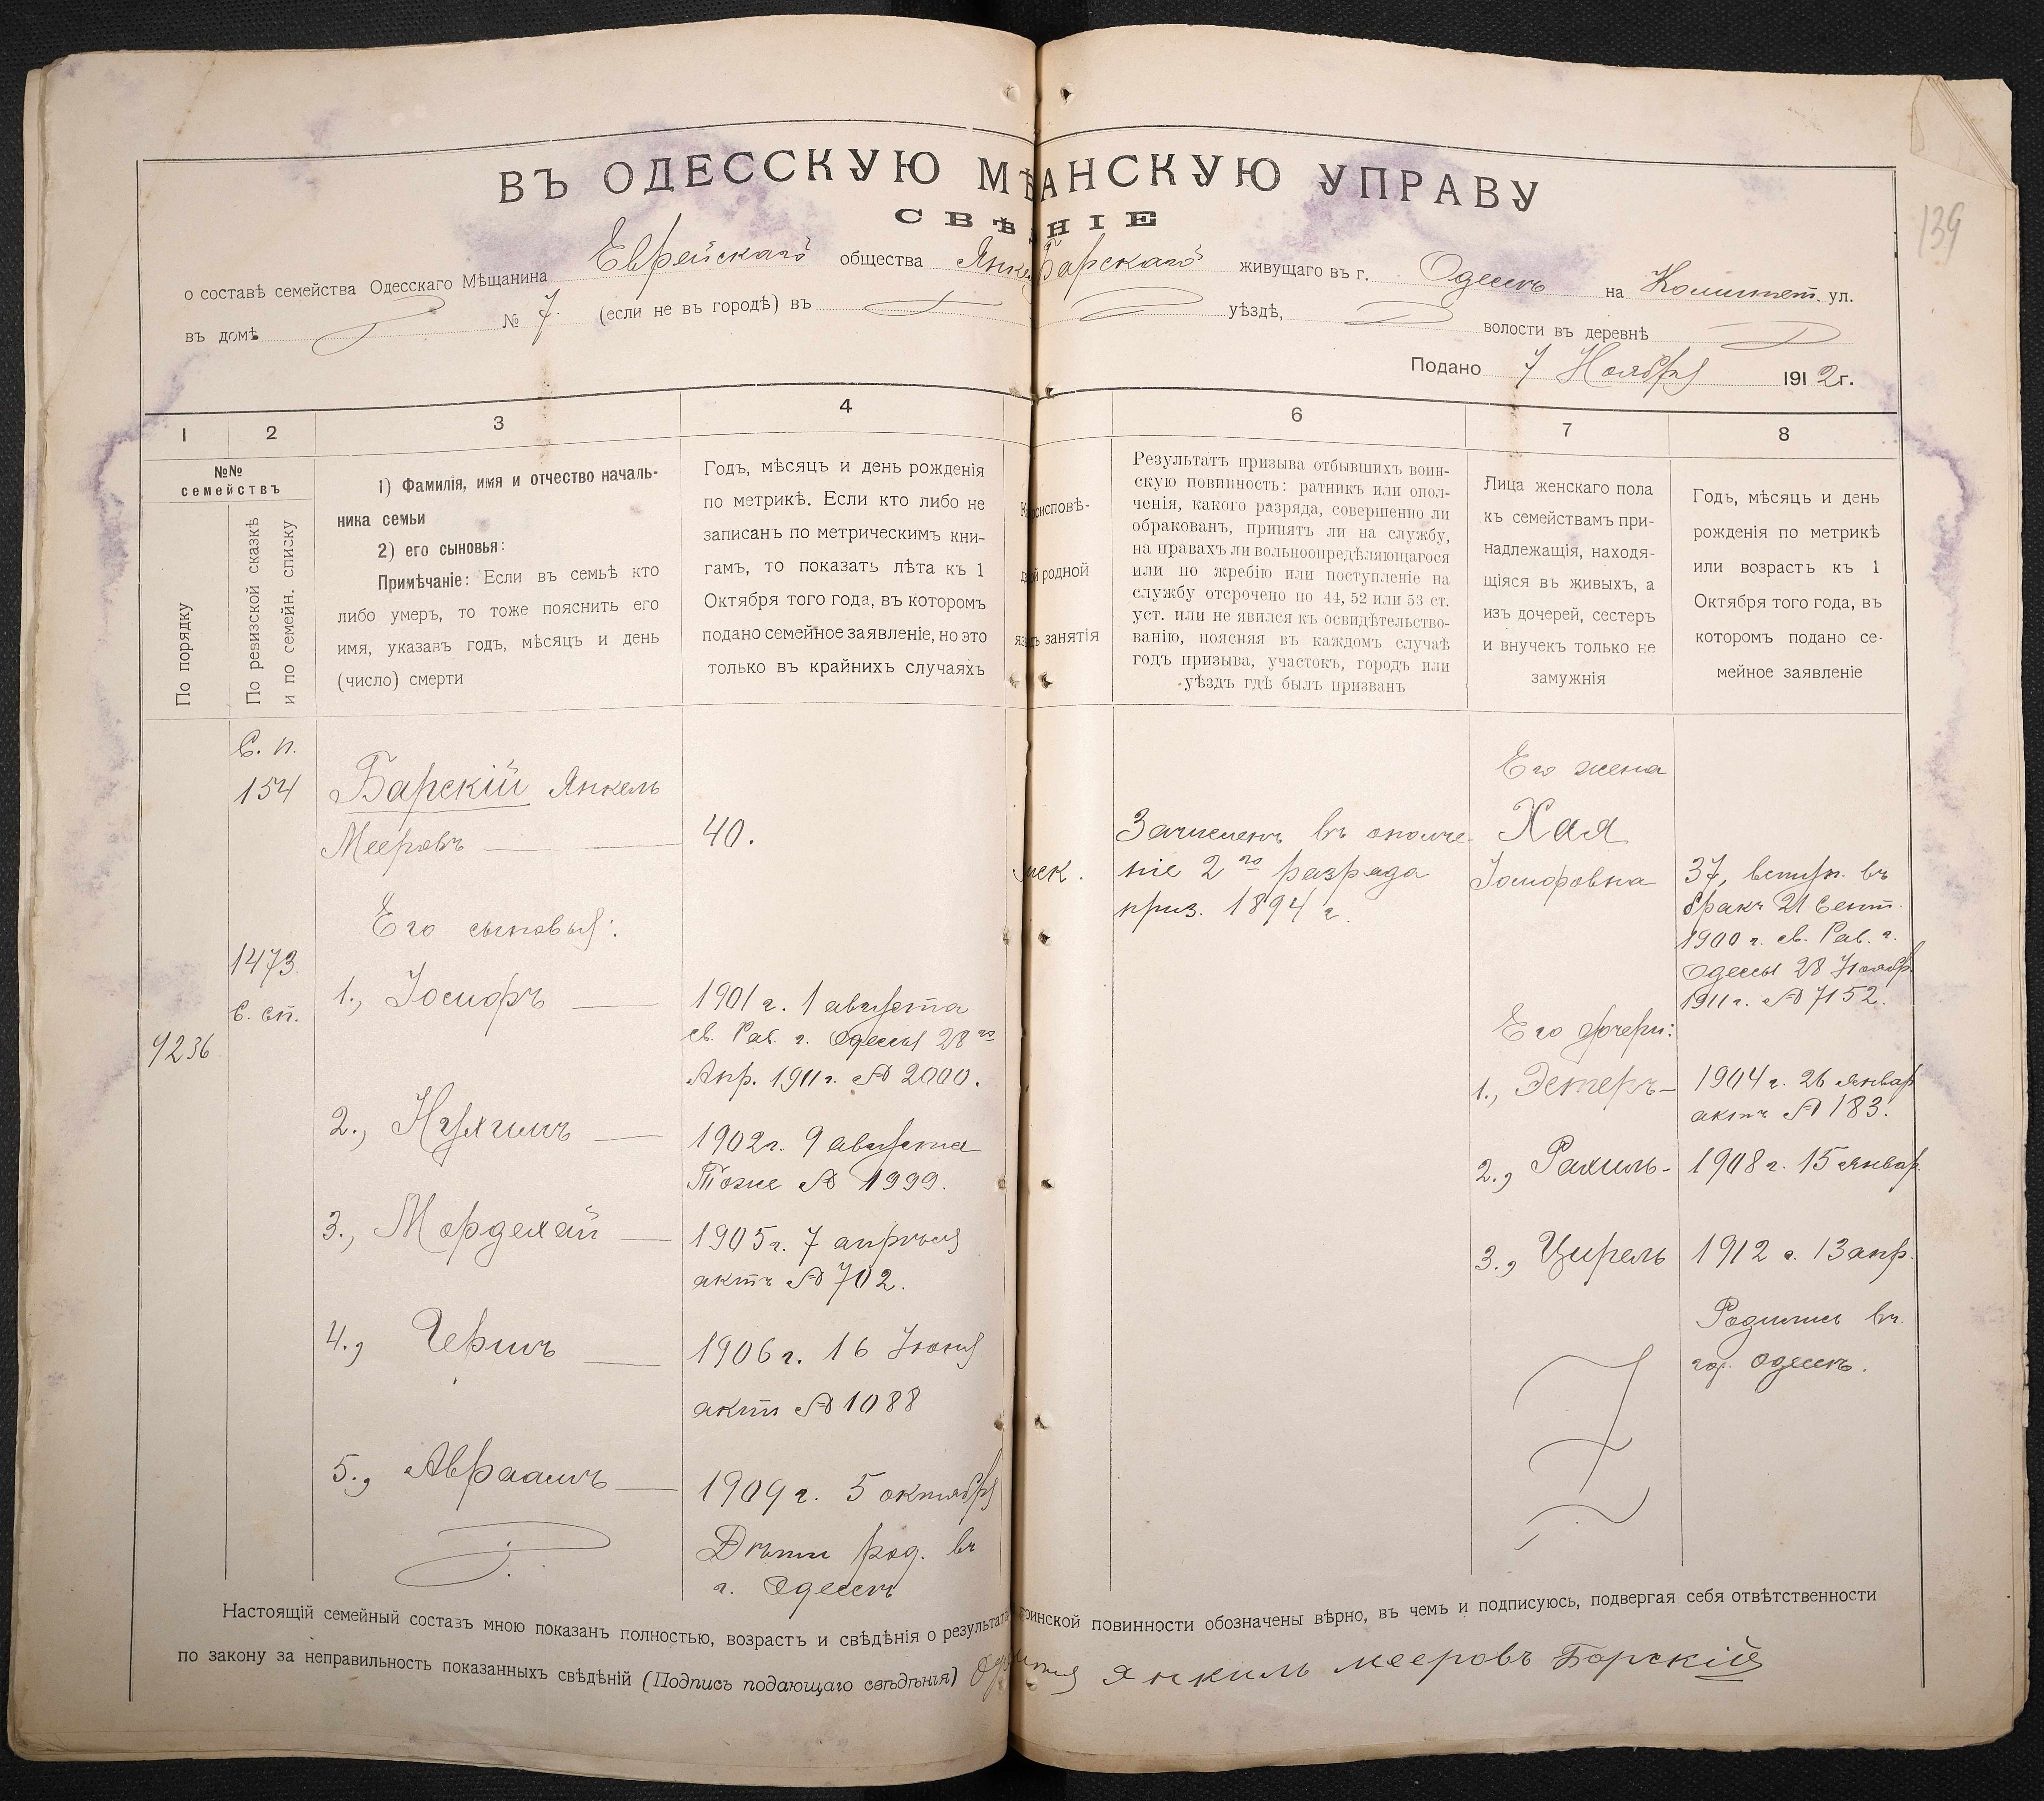 139
ВЪ ОДЕССКУЮ МѢ АНСКУЮ УПРАВУ
СВѢ НІЕ
о составѣ семейства Одесскаго Мѣщанина Еврейскаго общества Янке Барскаго живущаго въ г. Одессѣ на Комитет. ул.
въ домѣ № 7. (если не въ городѣ) въ уѣздѣ, волости въ деревнѣ
Подано 7 Ноября 1912 г.
1 2 3 4 6 7 8
№№
семействъ
По порядку
По ревизской сказкѣ
и по семейн. списку
1) Фамилія, имя и отчество началь-
ника семьи
2) его сыновья:
Примѣчаніе: Если въ семьѣ кто
либо умеръ, то тоже пояснить его
имя, указавъ годъ, мѣсяцъ и день
(число) смерти
Годъ, мѣсяцъ и день рожденія
по метрикѣ. Если кто либо не
записанъ по метрическимъ кни-
гамъ, то показать лѣта къ 1
Октября того года, въ которомъ
подано семейное заявленіе, но это
только въ крайнихъ случаяхъ
роисповѣ-
родной
занятія
Результатъ призыва отбывшихъ воин-
скую повинность: ратникъ или опол-
ченія, какого разряда, совершенно ли
обракованъ, принятъ ли на службу,
на правахъ ли вольноопредѣляющагося
или по жребію или поступленіе на
службу отсрочено по 44, 52 или 53 ст.
уст. или не явился къ освидѣтельство-
ванію, поясняя въ каждомъ случаѣ
годъ призыва, участокъ, городъ или
уѣздъ гдѣ былъ призванъ
Лица женскаго пола
къ семействамъ при-
надлежащія, находя-
щіяся въ живыхъ, а
изъ дочерей, сестеръ
и внучекъ только не
замужнія
Годъ, мѣсяцъ и день
рожденія по метрикѣ
или возрастъ къ 1
Октября того года, въ
которомъ подано се-
мейное заявленіе
9236
С. п.
154
1473
С. сп.
Барскій Янкель
Мееровъ
Его сыновья:
1., Іосифъ
2., Нухимъ
3., Мордехай
4., Гершъ
5., Авраамъ
40.
1901 г. 1 августа
св. Рав. г. Одессы 28 го
Апр. 1911 г. № 2000.
1902 г. 9 августа
Тоже № 1999.
1905 г. 7 апрѣля
актъ № 702.
1906 г. 16 Іюня
актъ № 1088
1909 г. 5 октября
Дѣти род. въ
г. Одессѣ
Зачисленъ въ ополче-
ніе 2 го разряда
приз. 1894 г.
Его жена
Хая
Іосифовна
Его дочери:
1., Эстеръ-
2., Рахиль-
3., Цирель
37, вступ. въ
бракъ 21 Сент.
1900 г. св. Рав. г.
Одессы 28 Ноябр.
1911 г. № 7152.
1904 г. 26 январ
актъ № 183.
1908 г. 15 январ.
1912 г. 13 апр.
Родились въ
гор. Одессѣ.
Настоящій семейный составъ мною показанъ полностью, возрастъ и свѣдѣнія о результатѣ воинской повинности обозначены вѣрно, въ чемъ и подписуюсь, подвергая себя отвѣтственности
по закону за неправильность показанныхъ свѣдѣній (Подпись подающаго свѣдѣнія) Янкиль Мееровъ Барскій